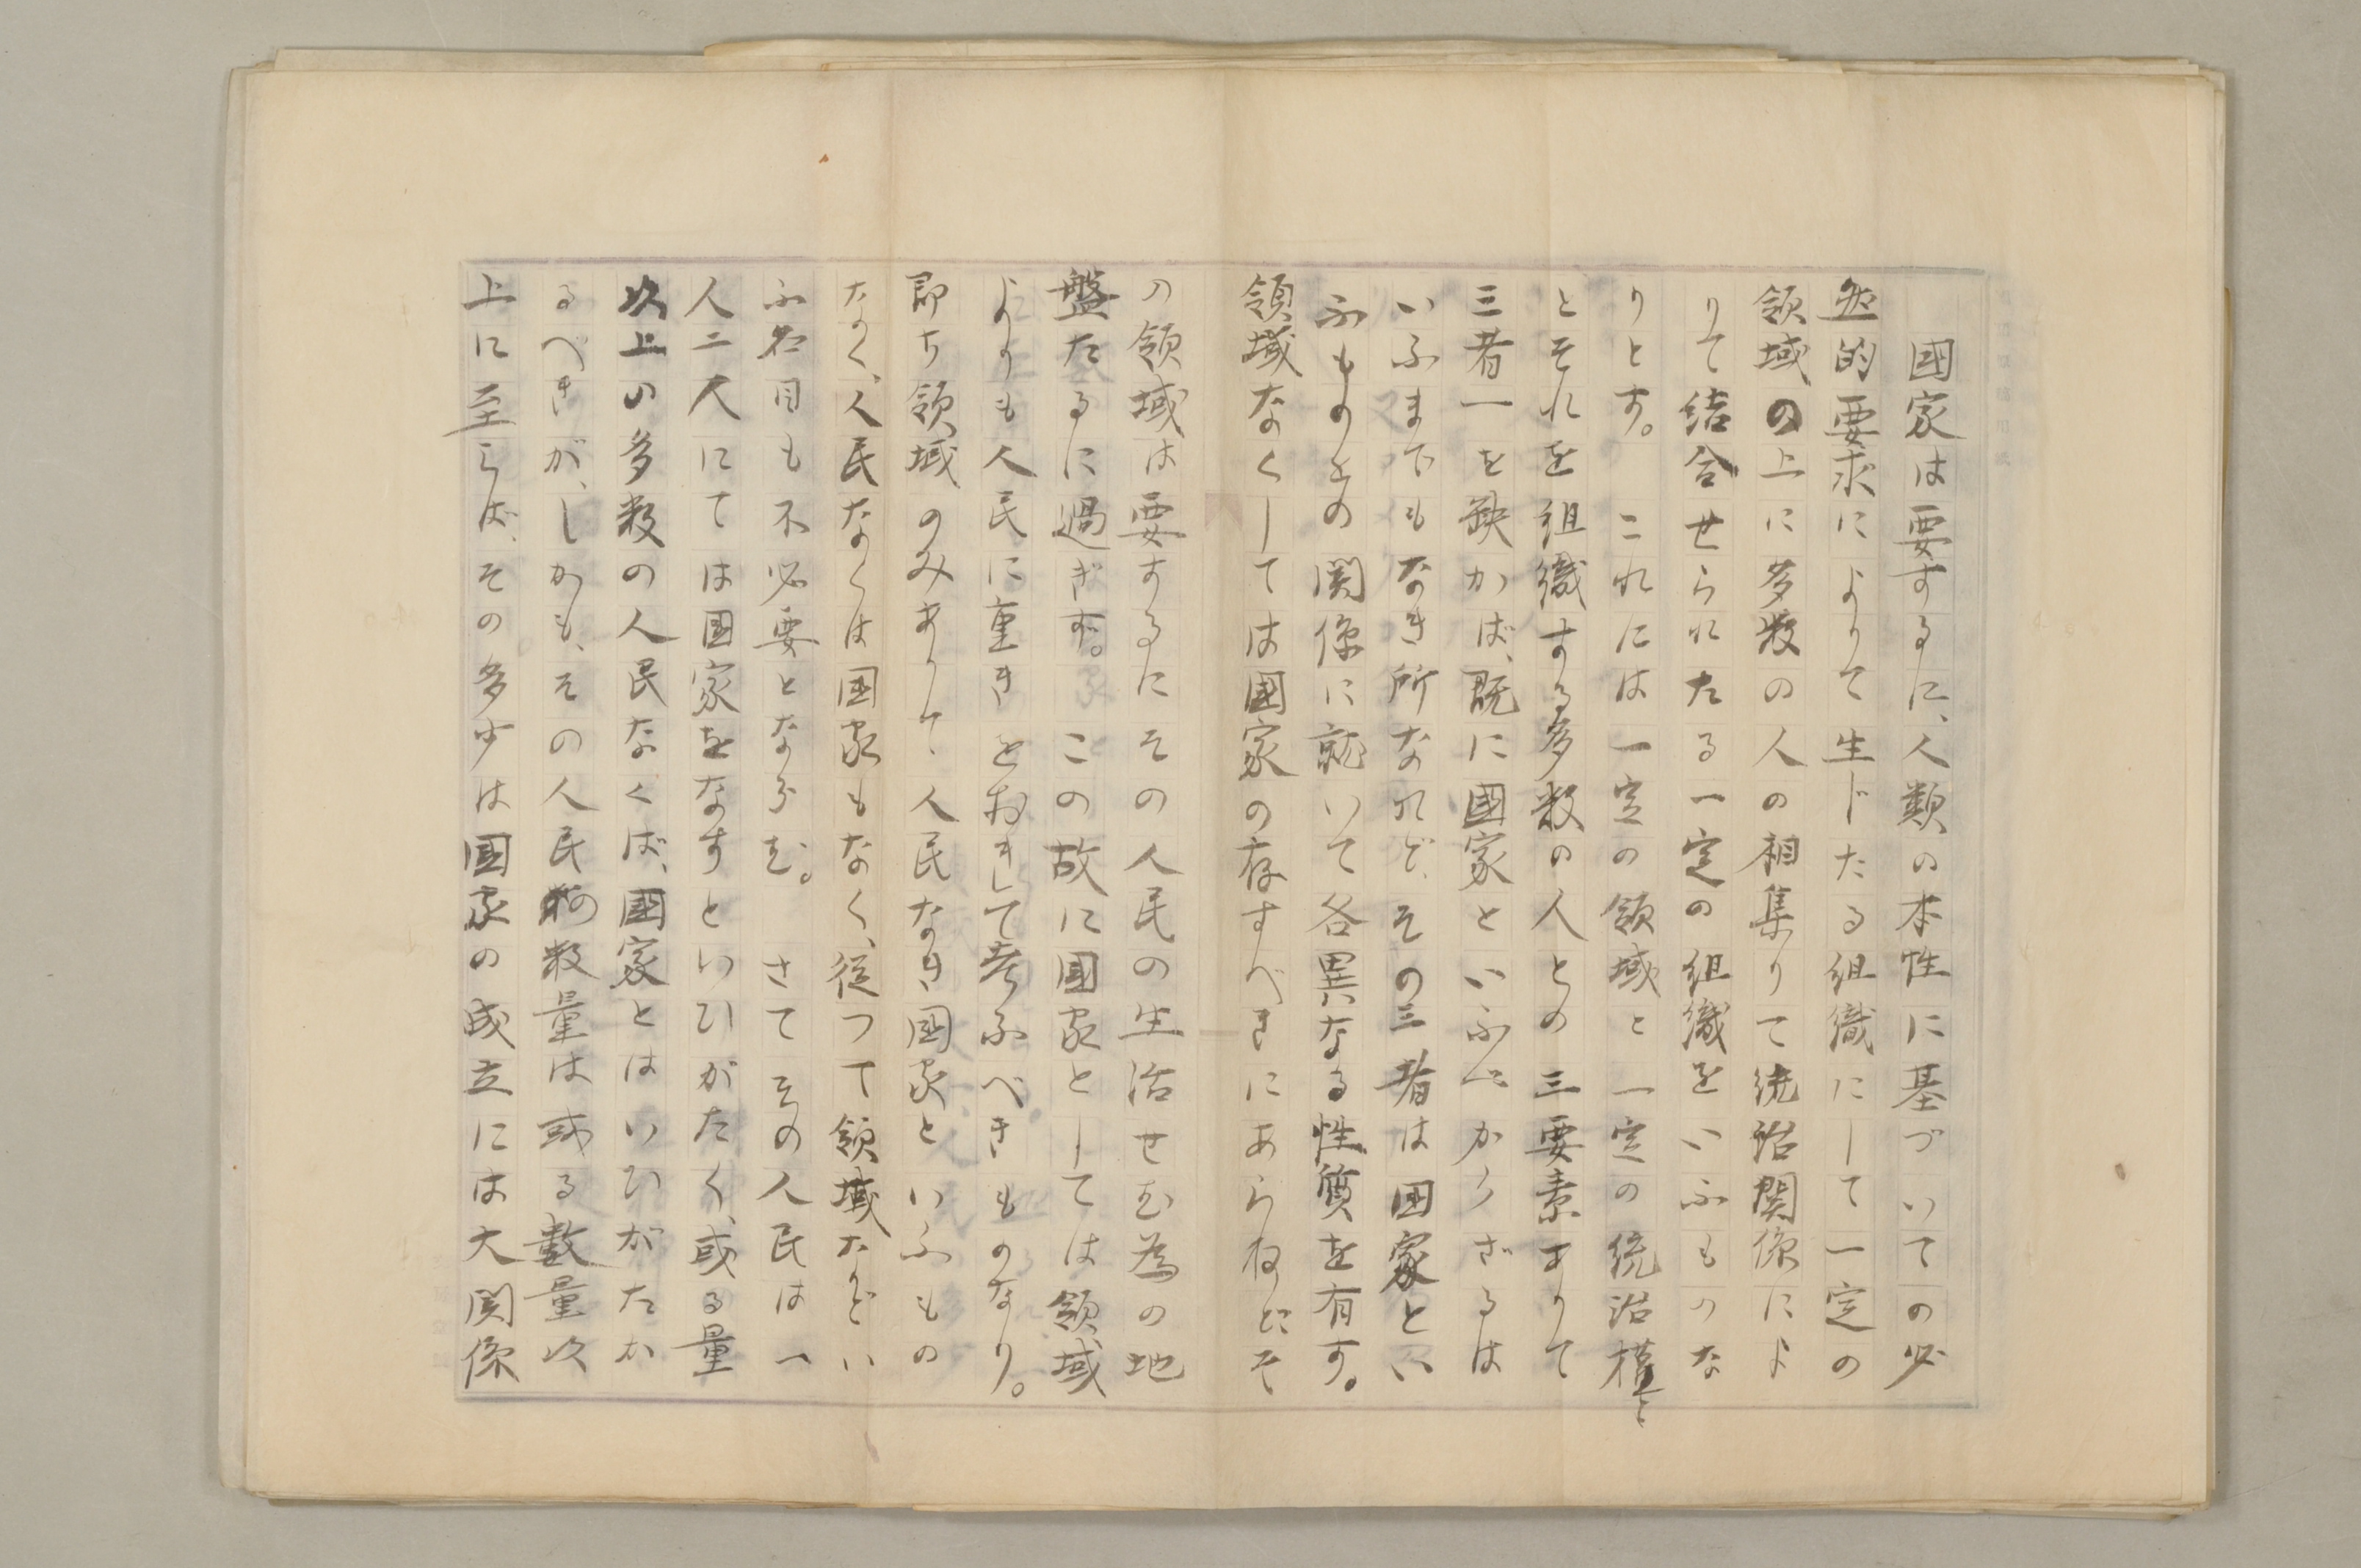 國家は要するに、人類の本性に基づいての必
然的要求によりて生じたる組織にして一定の
領域の上に多数の人の相集りて統治関係によ
りて結合せられたる一定の組織をいふものな
りとす。これには一定の領域と一定の統治権と
とそれを組織する多数の人との三要素ありて
三者一を缺かば、既に國家といふべからざるは
いふまでもなき所なれど、その三者は国家とい
ふものとの関係に就いて各異なる性質を有す。
領域なくしては國家の存すべきにあらねどそ
の領域は要するにその人民の生活せむ為の地
盤たるに過ぎず。この故に国家としては領域
よりも人民に重きをおきて考ふべきものなり。
即ち領域のみありて、人民なき國家といふもの
なく、人民なくは国家もなく、従つて領域などい
ふ名目も不必要とならむ。さてその人民は一
人二人にては国家をなすといひがたく、或る量
以上の多数の人民なくば、國家とはいひがたか
るべきが、しかも、その人民の数量は或る數量以
上に至らば、その多少は国家の成立には大関係